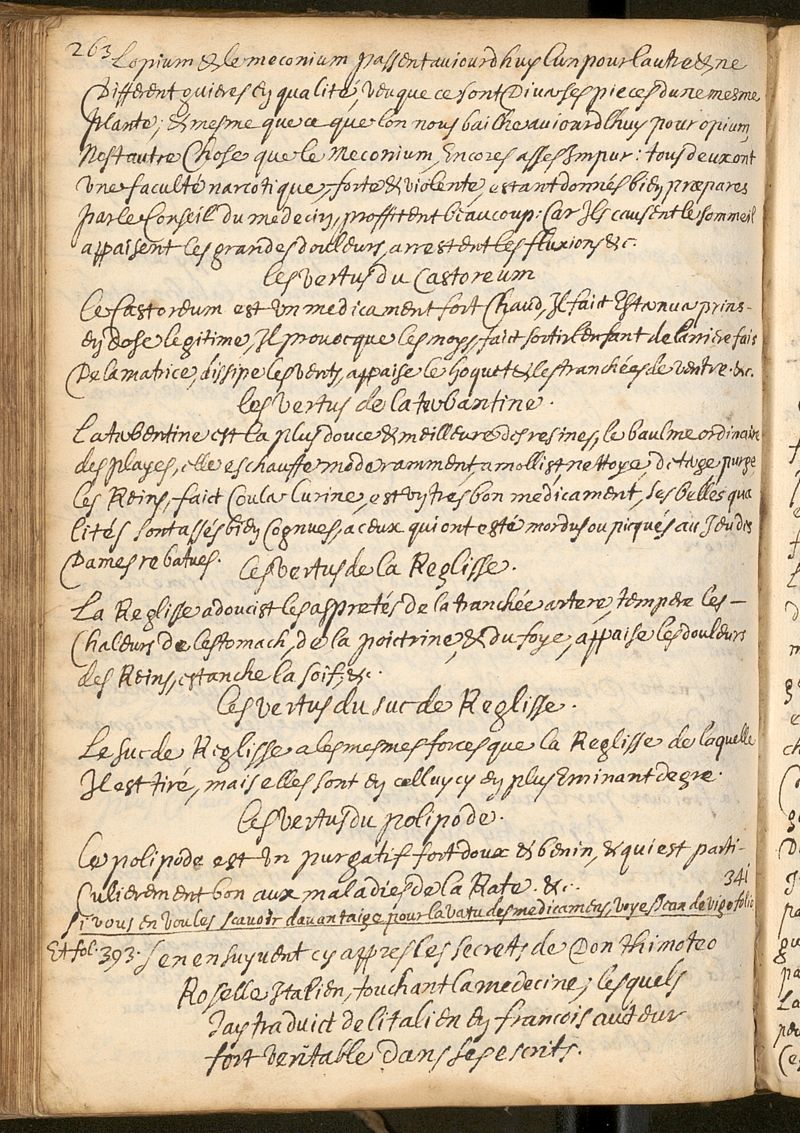 263 Lopium & le meconium passent aujourdhuy lun pour lautre & ne
Different guieres en qualité, veu que ce sont Diverses pieces dune mesme
plante; & mesme que ce que lon nous bailhe aujourdhuy pour opium,
Nest autre Chose que le Meconium, Encores asses Impur: tous deux ont
Une faculté narcotique, forte & violente, estant donnés bien præparés
par le Conseil du medecin, proffitent beaucoup: Car Ils causent le sommeil
appaisent les grandes douleurs, arrestent les fluxions &c.
les vertus du Castoreum
Le Castoreum est un medicament fort Chaud, Il faict Esternuer prins-
en dose legitime, Il provocque les moys, faict sortir lenfant de larriere fais
De la matrice, dissipe les vents, appaise le hoquet & les tranchées de ventre. &c.
les vertus de la terbantine.
La terbentine est la plus douce & meilleure des resines, le baulme ordinaire
des playes, elle eschauffe moderamment, amollist nettoye, deterge purge
les Reins, faict Couler lurine, est un tres bon medicament, ses belles qua
lités sont assés bien Cognues, a ceux qui ont esté mordus ou picqués au Jeu des
Dames rebatues. les vertus de la Reglisse.
La Reglisse adoucist les aspretés de la tranchée artere, tempere les -
Chaleurs de lestomach, de la poictrine, & du foye, appaise les douleurs
des Reins, estanche la soif, &c.
les vertus du suc de Reglisse.
Le suc de Reglisse a les mesmes forces que la Reglisse de laquelle
Il est tiré, mais elles sont en celluy cy en plus Eminant degre.
les vertus du polipode.
Le polipode est un purgatif fort doux & benin, & qui est parti-
culierement bon aux maladies de la Rate. &c. 341
Si vous en voules scavoir davantaige pour la vertu des medicamens, voyes Jean de vigo folio
Et fol. 393. Sen ensuyvent cy appres les secrets de Don thimoteo
Roselle Italien, touchant la medecine, lesquels
Jay traduict de litalien en francois auteur
fort veritable Dans ses escrits.